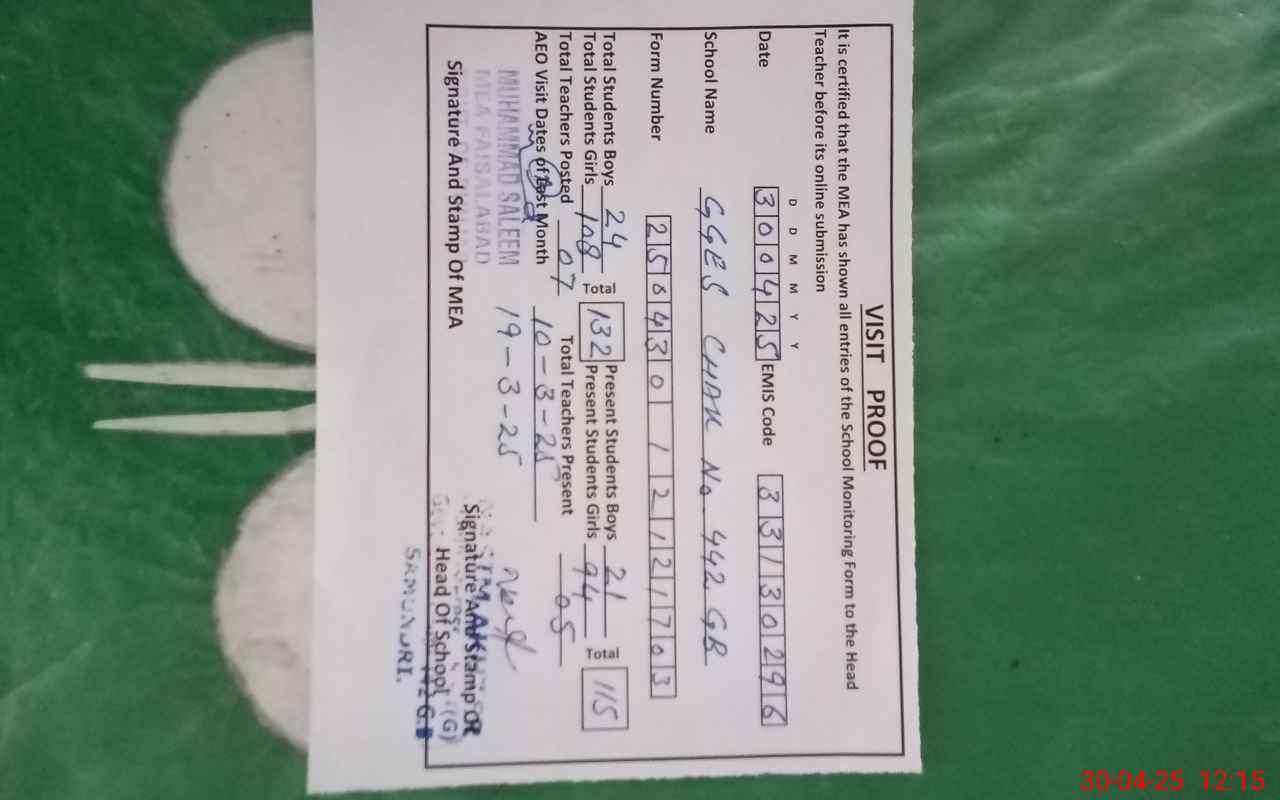 VISIT PROOF
It is certified that the MEA has shown all entries of the School Monitoring Form to the Head
Teacher before its online submission
D D M M Y Y
Date 300425 EMIS Code 33130296
School Name GGES CHAK No. 442 GB
Form Number 25043012121703
Total Students Boys 24 Total 132 Present Students Boys 21 Total 115
Total Students Girls 108 Present Students Girls 94
Total Teachers Posted 07 Total Teachers Present 05
AEO Visit Dates of Last Month 10-3-25
19-3-25
MUHAMMAD SALEEM
MEA FAISALABAD
Signature And Stamp Of MEA
Signature And Stamp OR
Head Of School (G)
442 G.B
SAMUNDRI.
30-04-25 12:15